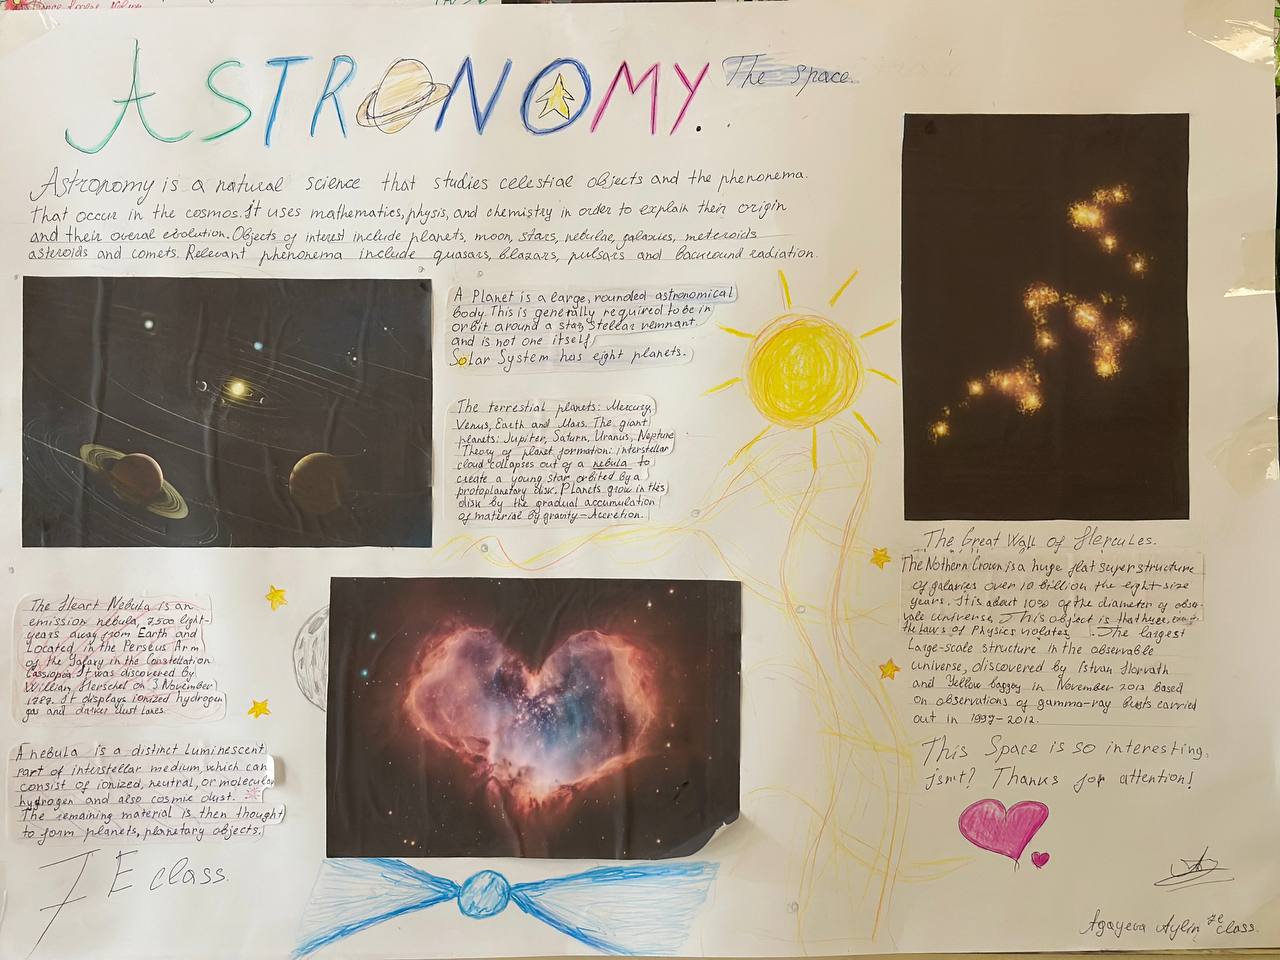 ASTRONOMY.
The space.
Astronomy is a natural science that studies celestial objects and the phenonema.
that occur in the cosmos. It uses mathematics, physis, and chemistry in order to explain their origin
and their overal evolution. Objects of interest include planets, moon, stars, nebulae, galaxies, meteroids
asteroids and comets. Relevant phenonema include quasars, blazars, pulsars and backround radiation.
A Planet is a large, rounded astronomical
body. This is generally required to be in
orbit around a star, stellar remnant.
and is not one itself.
Solar System has eight planets.
The terrestial planets: Mercury,
Venus, Earth and Mars. The giant
planets: Jupiter, Saturn, Uranus, Neptune
Theory of planet formation: interstellar
cloud collapses out of a nebula to
create a young star orbited by a
protoplanetary disk. Planets grow in this
disk by the gradual accumulation
of material by gravity - Accretion.
The Heart Nebula is an
emission nebula, 7,500 light-
years away from Earth and
Located in the Perseus Arm
of the Galaxy in the Constellation
Cassiopea. It was discovered by
William Herschel on 3 November
1787. It displays ionized hydrogen
gas and darker dust lanes.
A nebula is a distinct luminescent
part of interstellar medium, which can
consist of ionized, neutral, or molecular
hydrogen and also cosmic dust.
The remaining material is then thought
to form planets, planetary objects.
7 E class.
The Great Wall of Hercules.
The Nothern Crown is a huge flat superstructure
of galaxies over 10 billion the eight size
years. It is about 10% of the diameter of obser-
vale universe. This object is that huge,
the laws of Physics violates. The largest
Large-scale structure in the observable
universe, discovered by Istvan Horvath
and Yellow baggey in November 2013 based
on observations of gamma-ray busts carried
out in 1997-2012.
This Space is so interesting,
isnt? Thanks for attention!
Agayeva Aylin 7e class.